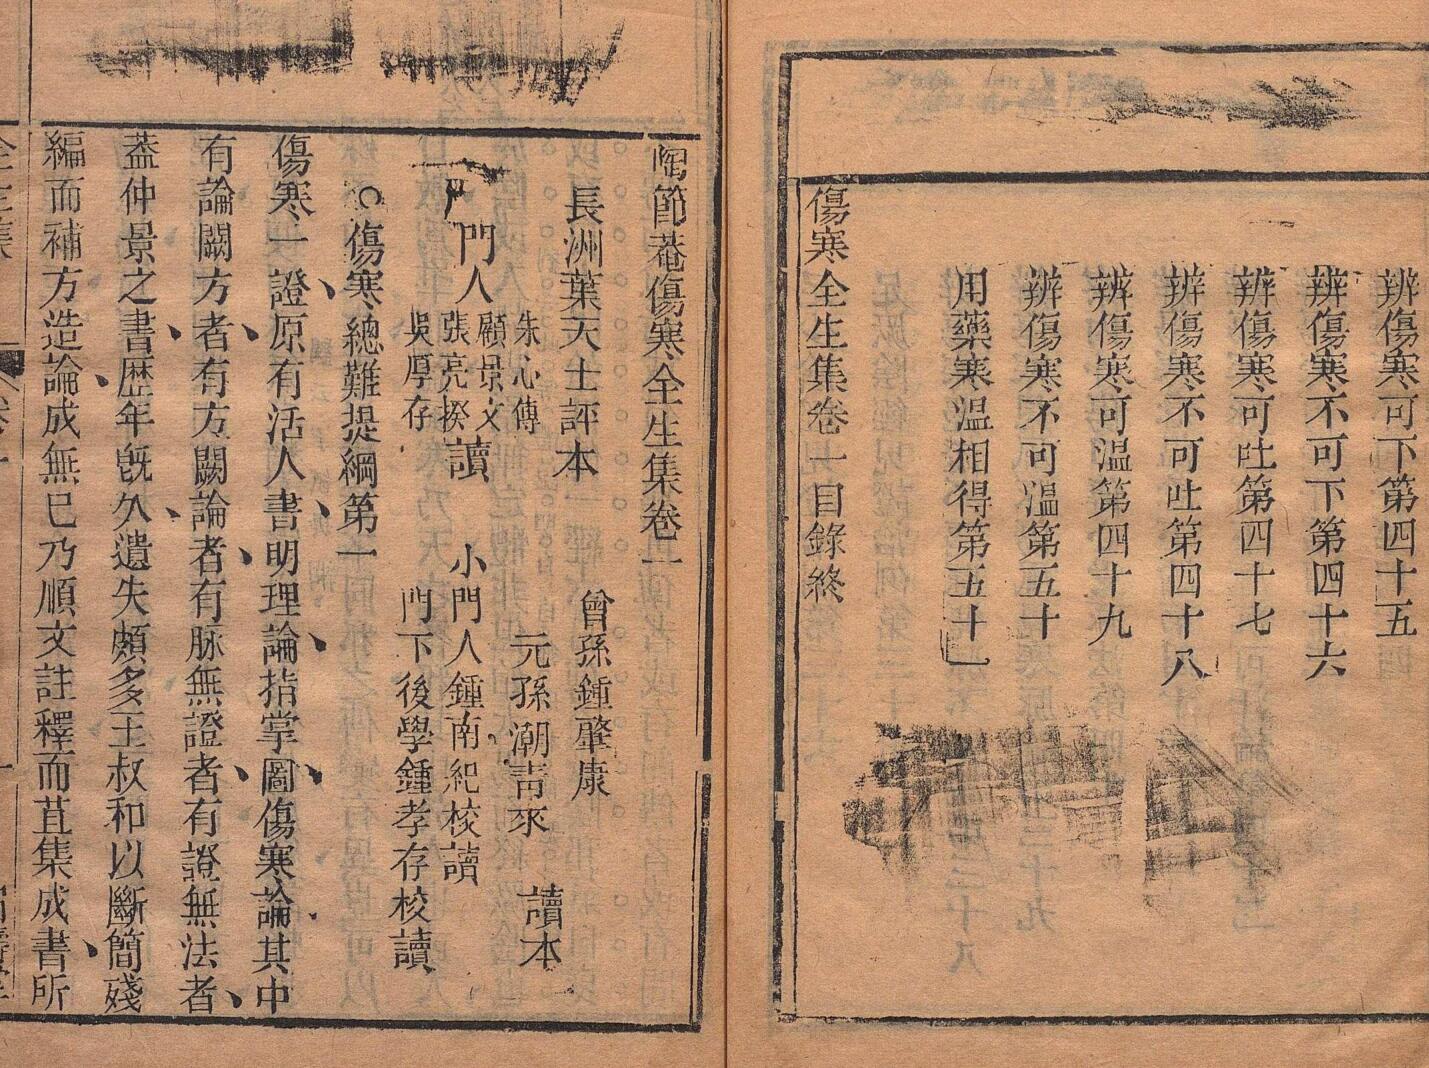 辨傷寒可下第四十五
辨傷寒不可下第四十六
辨傷寒可吐第四十七
辨傷寒不可吐第四十八
辨傷寒可温第四十九
辨傷寒不可温第五十
用藥寒温相得第五十一
傷寒全生集卷一目錄終
陶節菴傷寒全生集卷一
長洲葉天士評本 曾孫鍾肇康
元孫潮青來 讀本
門人
朱心傳
顧景文
張亮揆
吳厚存
讀
小門人鍾南紀校讀
門下後學鍾孝存校讀
○傷寒總難提綱第一
傷寒一證原有活人書明理論指掌圖傷寒論其中
有論闕方者有方闕論者有脉無證者有證無法者
葢仲景之書歴年旣久遺失頗多王叔和以斷簡殘
編而補方造論成無已乃順文註釋而苴集成書所